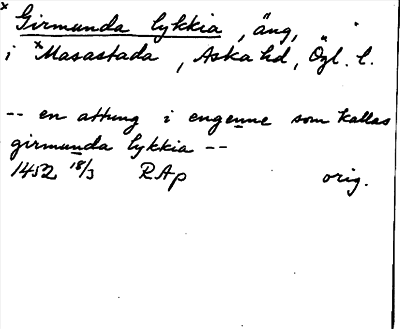 × Girmunda lykkia, äng,
i ×Masastada, Aska hd, Ögl. l.
-- en attung i engenne som kallas
girmunda lykkia --
1452 18/3 RAp orig.